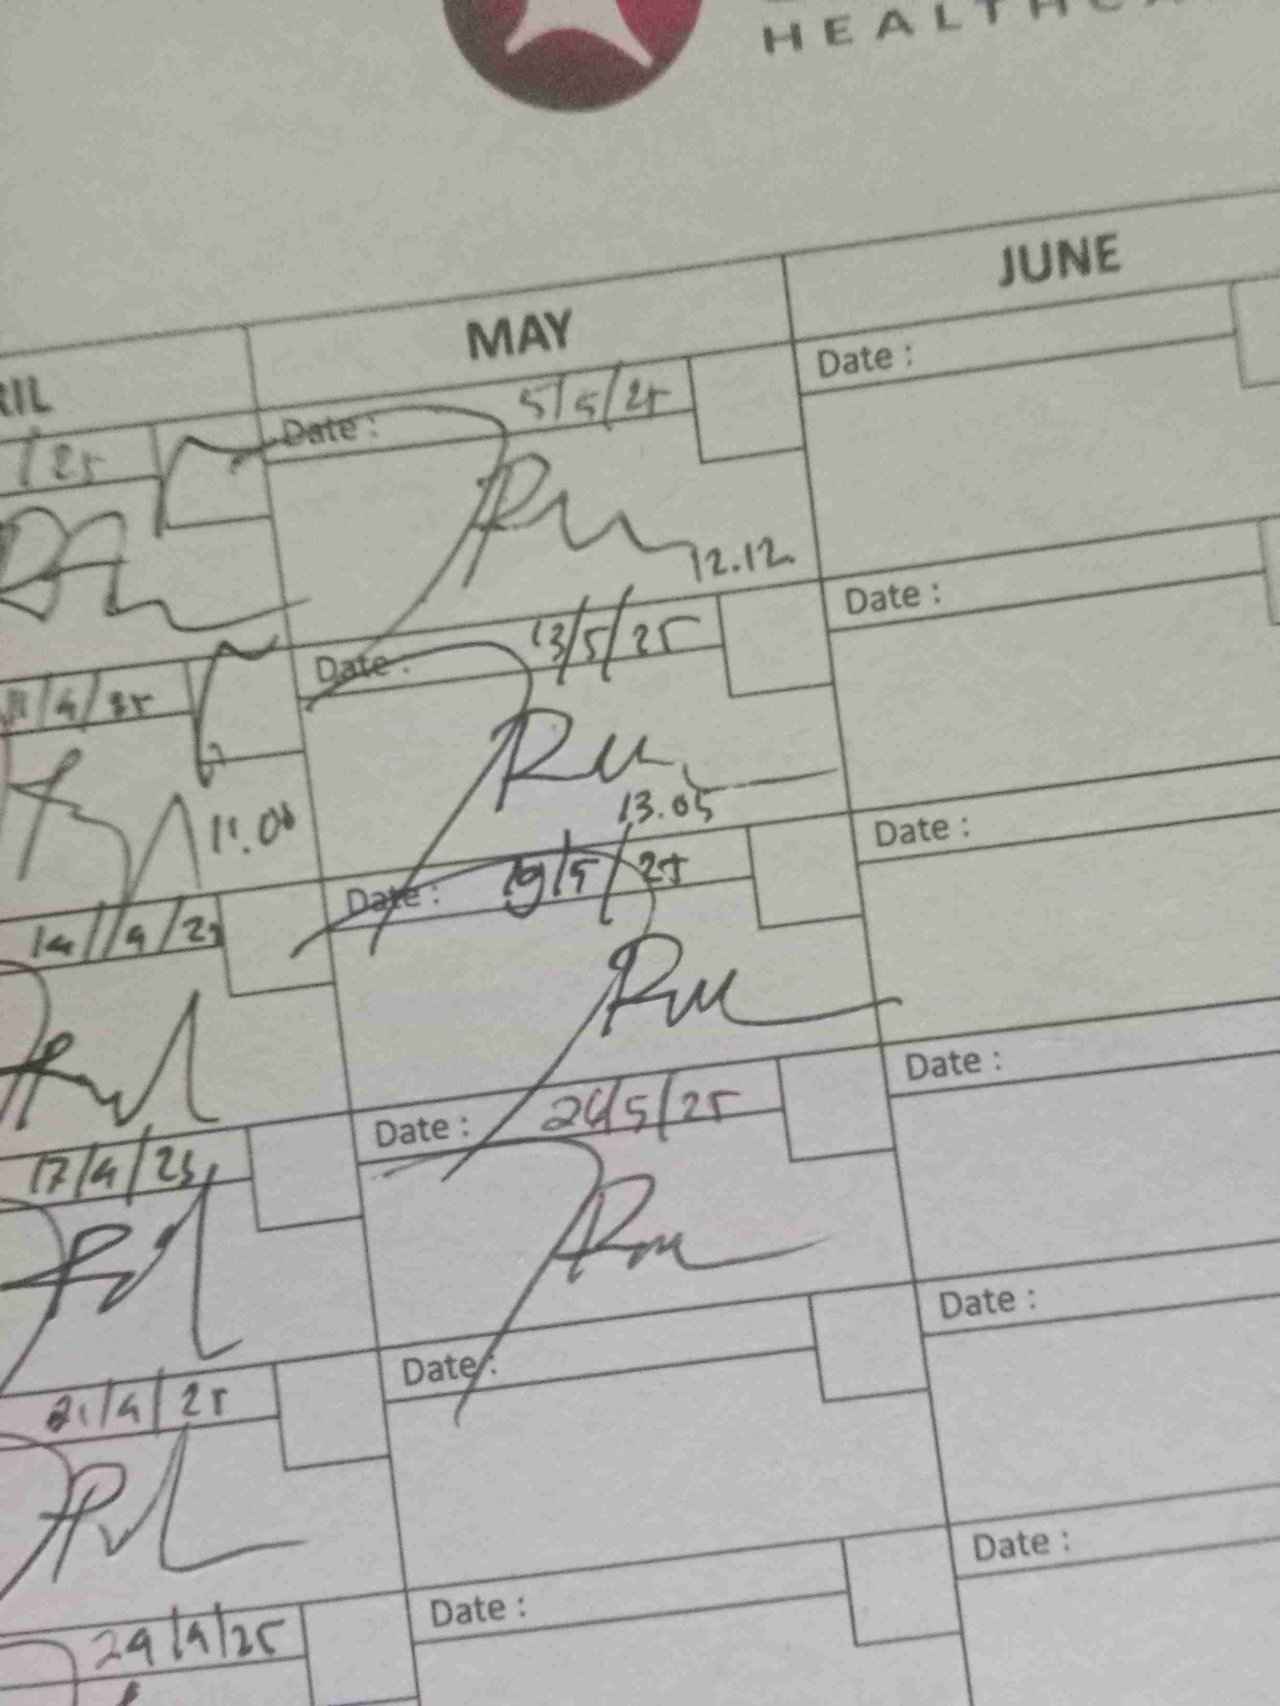 HEALTHCA
RIL MAY JUNE
/25 Date : 5/5/25 Date :
12.12
11/4/25 Date : 13/5/25 Date :
11.00 13.05
14/4/25 Date : 19/5/25 Date :
17/4/25 Date : 26/5/25 Date :
21/4/25 Date : Date :
29/4/25 Date : Date :